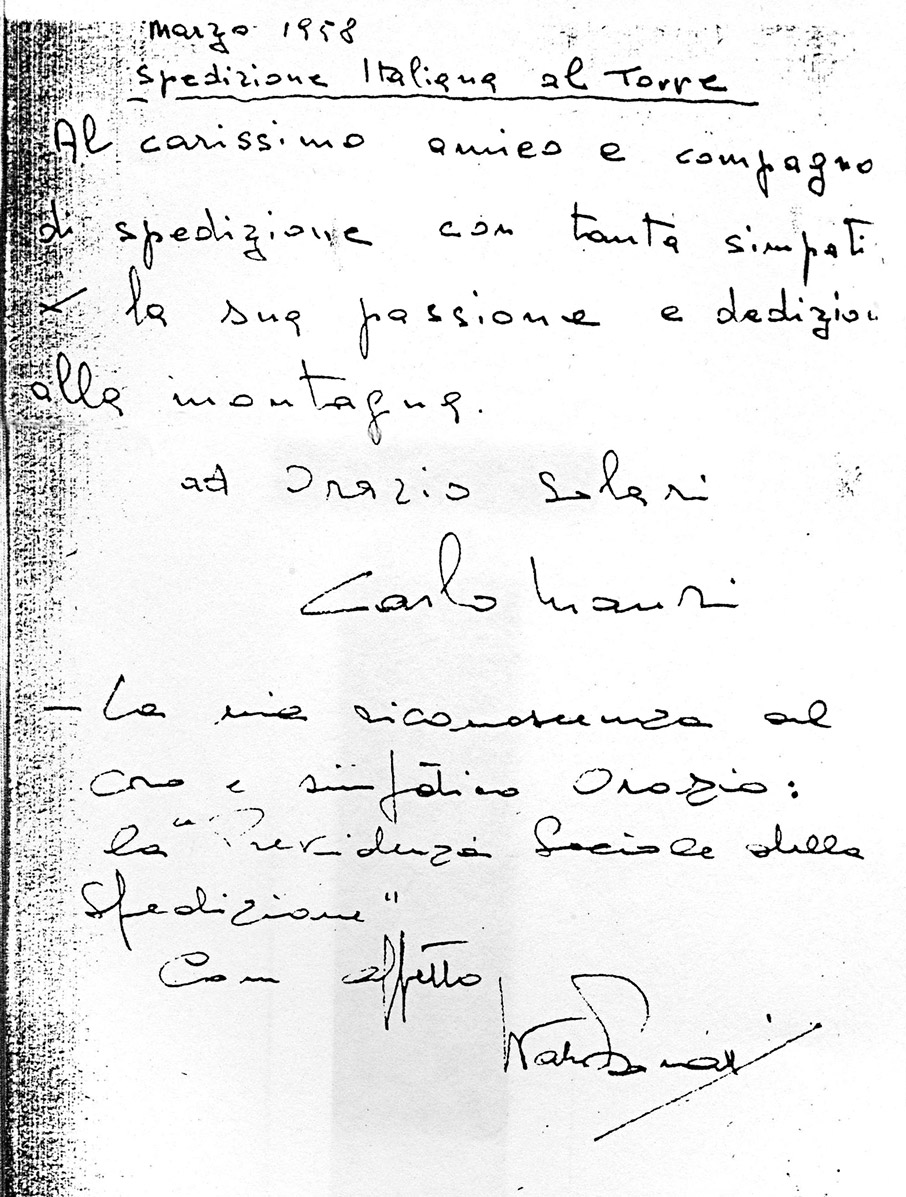 marzo 1958
Spedizione Italiana al Torre
Al carissimo amico e compagno
di spedizione con tanta simpati
x la sua passione e dedizion
alla montagna.
ad Orazio Solari
Carlo Mauri
– La mia riconoscenza al
caro e simpatico Orazio:
la "Previdenza Sociale della
Spedizione"
Con affetto
Walter Bonatti